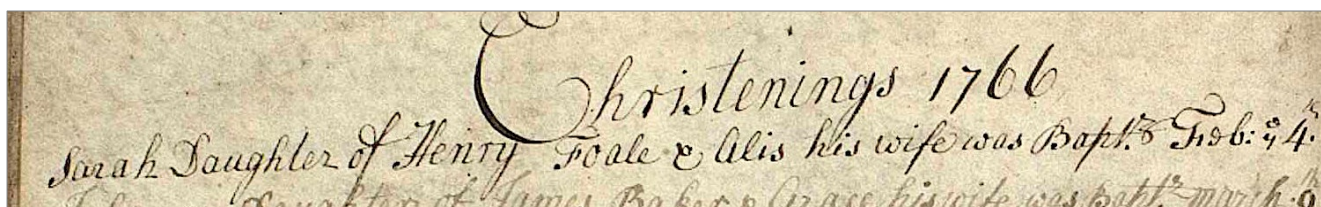 Christenings 1766
Sarah Daughter of Henry Foale & Alis his wife was Bapt.d Feb: ye 4.th
Daughter of James Baker & Grace his wife was Bapt.d march. 9th